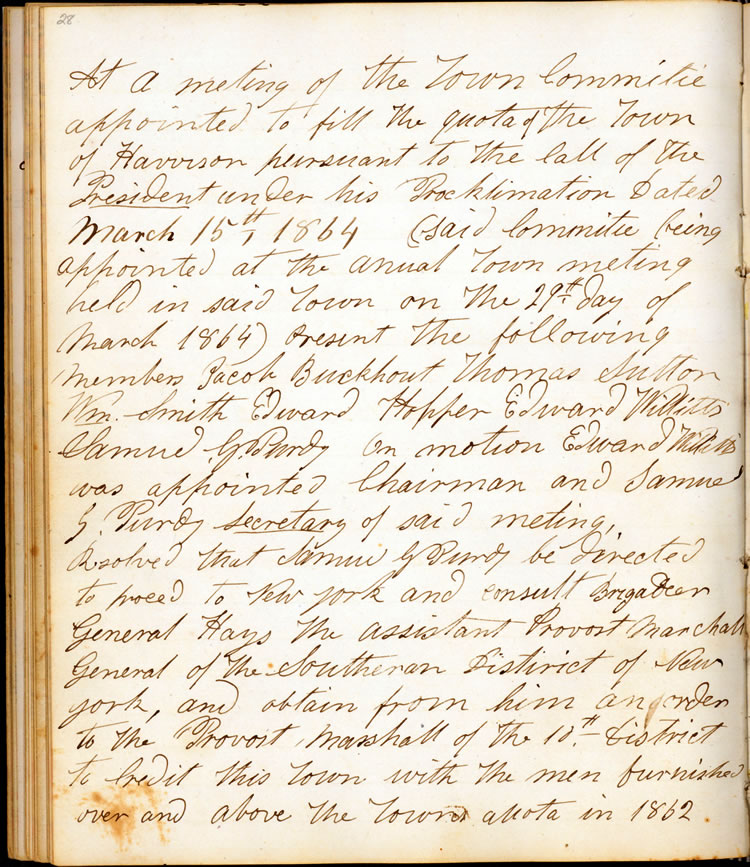 28
At a meting of the Town Committie
appointed to fill the quota of the Town
of Harrison pursuant to the Call of the
President under his Procklimation Dated
March 15th, 1864 (said Committie being
appointed at the anual Town meting
held in said Town on the 29th day of
March 1864) Present the following
members Jacob Buckhout Thomas Sutton
Wm. Smith Edward Hopper Edward Willitts
Samuel G Purdy On motion Edward Willitts
was appointed Chairman and Samuel
G. Purdy Secretary of said meting,
Resolved that Samuel G Purdy be directed
to proced to New york and consult Brigadeer
General Hays the assistant Provost Marchall
General of the Southeran Distirict of New
york, and obtain from him an order
to the Provost Marshall of the 10th District
to Credit this Town with the men furnished
over and above the Towns quota in 1862